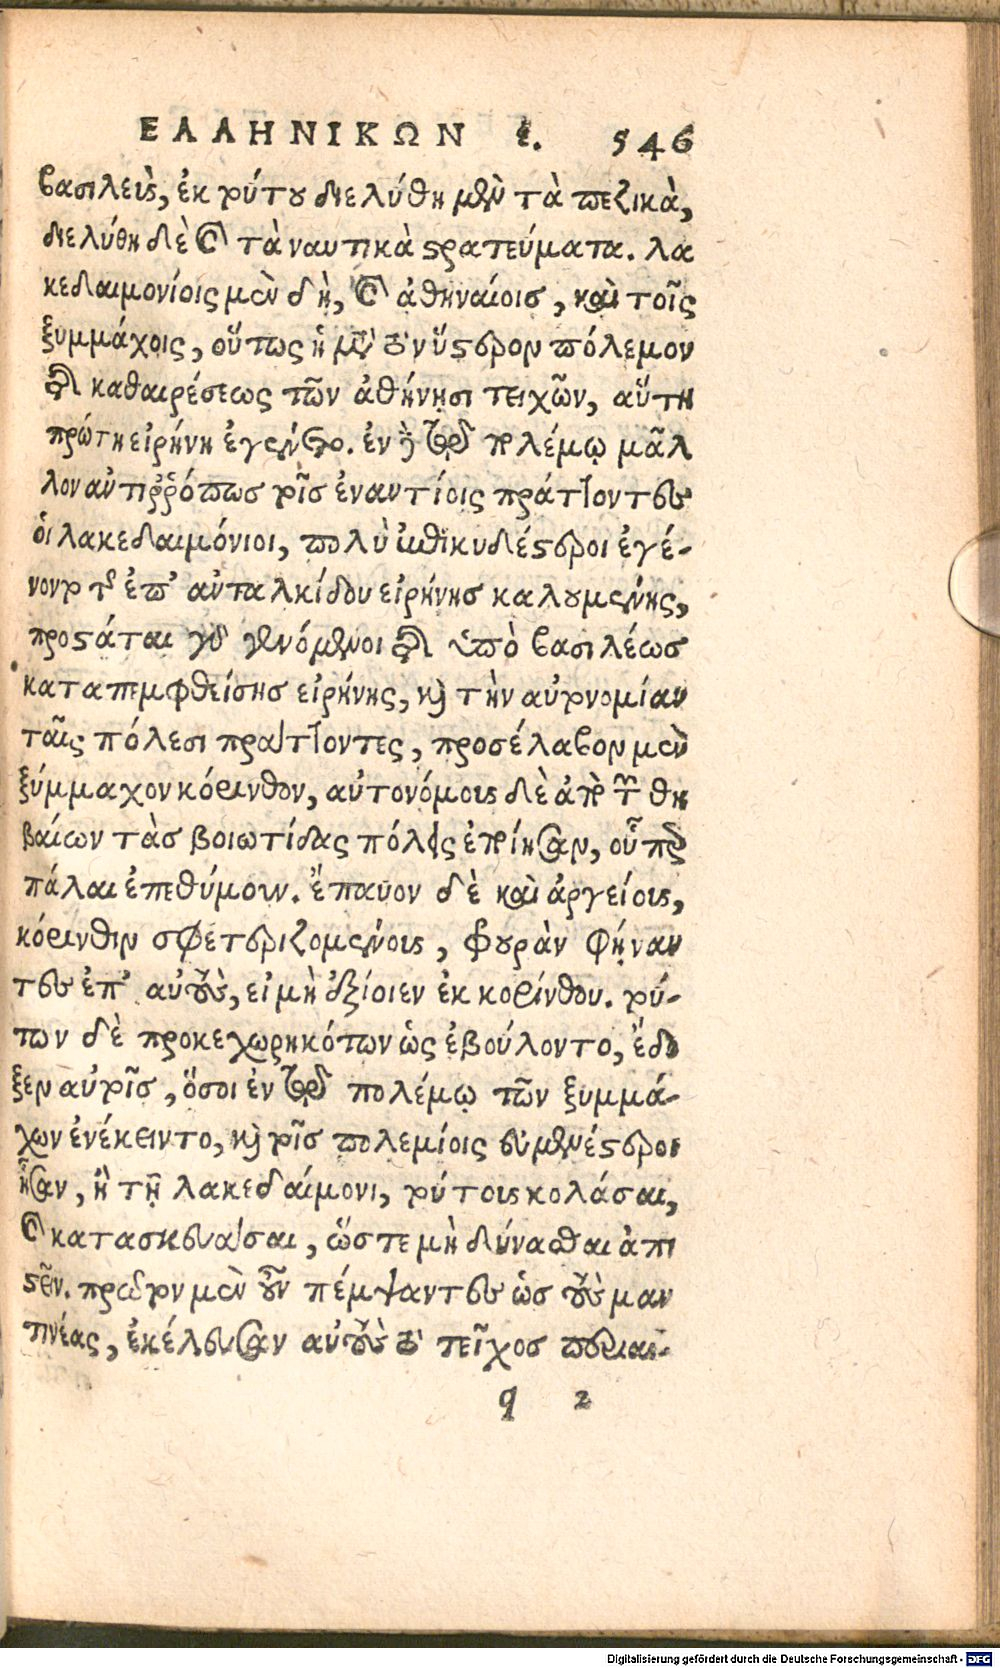 ΕΛΛΗΝΙΚΩΝ ε. 546
βασιλεὺς, ἐκ τούτου διελύθη μὲν τὰ πεζικὰ,
διελύθη δὲ καὶ τὰ ναυτικὰ στρατεύματα. λα
κεδαιμονίοις μὲν δὴ, καὶ ἀθηναίοις, καὶ τοῖς
ξυμμάχοις, οὕτως ἡ μετὰ τὸν ὕστερον πόλεμον
τῆς καθαιρέσεως τῶν ἀθήνησι τειχῶν, αὕτη
πρώτη εἰρήνη ἐγένετο. ἐν δὲ τῷ πολέμῳ μᾶλ
λον ἀντιρρόπως τοῖς ἐναντίοις πράττοντες
οἱ λακεδαιμόνιοι, πολὺ ἐπικυδέστεροι ἐγέ-
νοντο ἐκ τῆς ἐπ' ἀνταλκίδου εἰρήνης καλουμένης,
προστάται γὰρ γενόμενοι τῆς ὑπὸ βασιλέως
καταπεμφθείσης εἰρήνης, καὶ τὴν αὐτονομίαν
ταῖς πόλεσι πράττοντες, προσέλαβον μὲν
ξύμμαχον κόρινθον, αὐτονόμους δὲ ἀπὸ τῶν θη
βαίων τὰς βοιωτίδας πόλεις ἐποίησαν, οὗπερ
πάλαι ἐπεθύμουν. ἔπαυον δὲ καὶ ἀργείους,
κόρινθον σφετεριζομένους, φρουρὰν φήναν
τες ἐπ' αὐτοὺς, εἰ μὴ ἐξίοιεν ἐκ κορίνθου. τού-
των δὲ προκεχωρηκότων ὡς ἐβούλοντο, ἔδο
ξεν αὐτοῖς, ὅσοι ἐν τῷ πολέμῳ τῶν ξυμμά-
χων ἐνέκειντο, καὶ τοῖς πολεμίοις εὐμενέστεροι
ἦσαν, ἢ τῇ λακεδαίμονι, τούτους κολάσαι,
καὶ κατασκευάσαι, ὥστε μὴ δύνασθαι ἀπι
στεῖν. πρῶτον μὲν οὖν πέμψαντες ὡς τοὺς μαν
τινέας, ἐκέλευσαν αὐτοὺς τὸ τεῖχος περιαι-
q 2
Digitalisierung gefördert durch die Deutsche Forschungsgemeinschaft - DFG